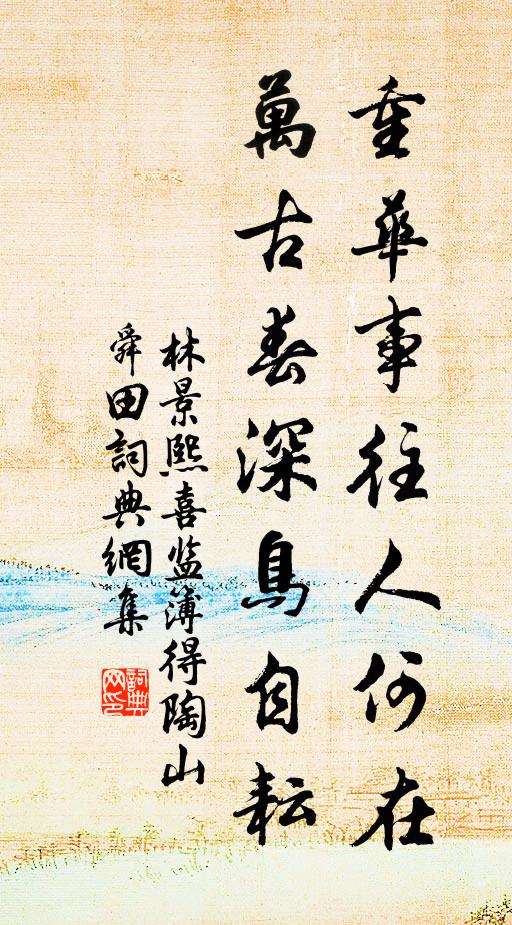 重華事往人何在
萬古春深鳥自耘
林景熙喜监簿得陶山
舜田詞典網集
詞典网印